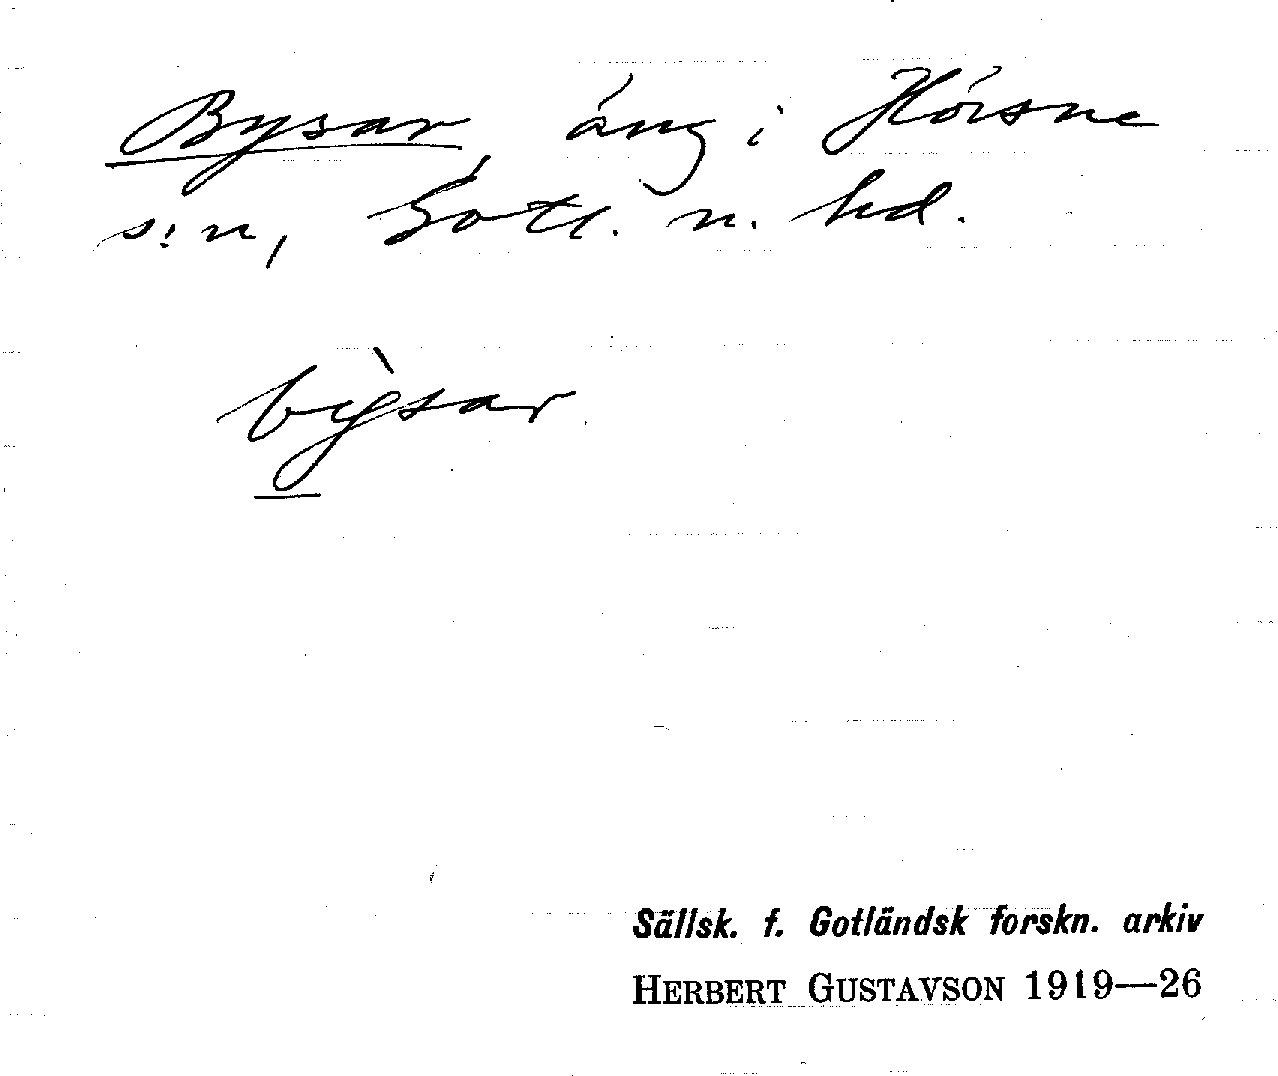 Bysar, äng i Hörsne
s:n, Gotl. n. hd.
bỳsar
Sällsk. f. Gotländsk forskn. arkiv
HERBERT GUSTAVSON 1919—26